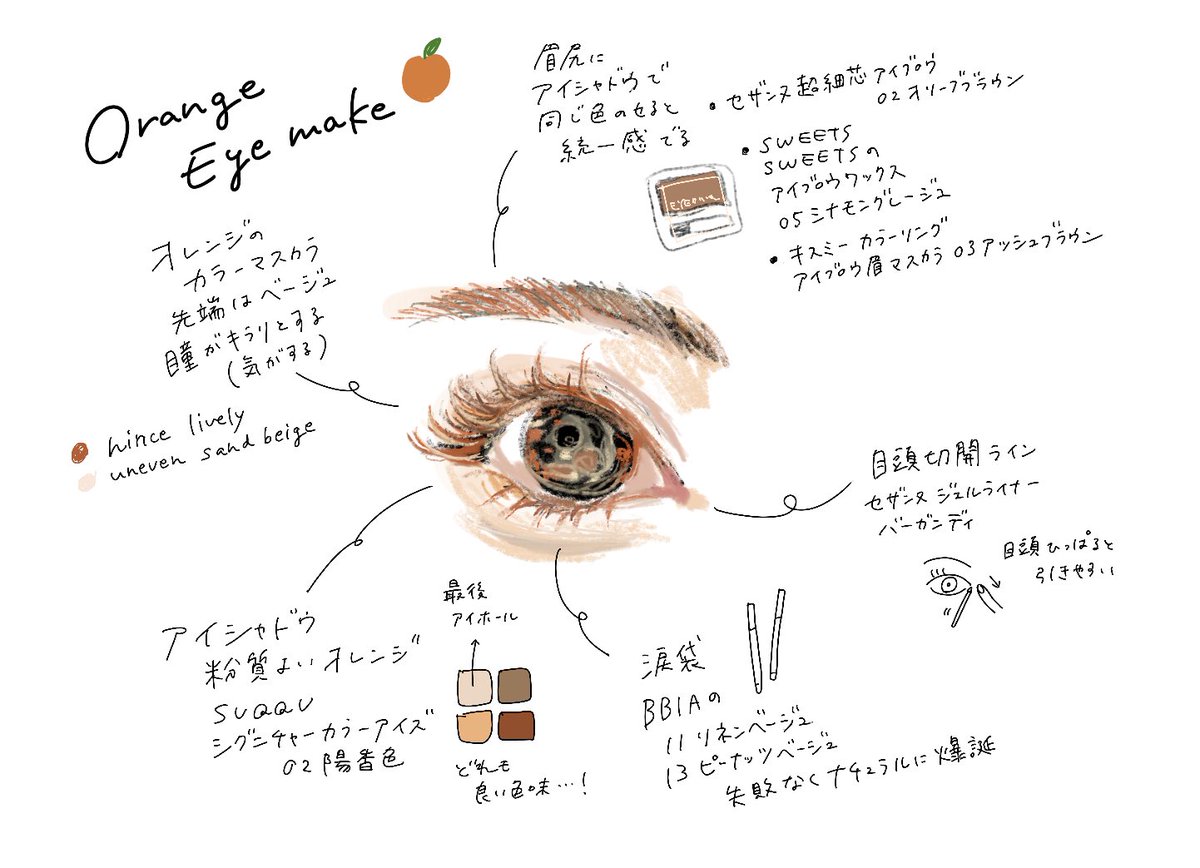 Orange
Eye make
眉尻に
アイシャドウで
同じ色のせると
統一感でる
• セザンヌ超細芯アイブロウ
02 オリーブブラウン
• SWEETS
SWEETSの
アイブロウワックス
05 シナモングレージュ
• キスミー カラーリング
アイブロウ眉マスカラ 03 アッシュブラウン
オレンジの
カラーマスカラ
先端はベージュ
瞳がキラリとする
(気がする)
hince lively
uneven sand beige
目頭切開ライン
セザンヌ ジェルライナー
バーガンディ
目頭ひっぱると
引きやすい
アイシャドウ
粉質よいオレンジ
SUQQU
シグニチャーカラーアイズ
02 陽香色
最後
アイホール
どれも
良い色味…!
涙袋
BBIAの
11 リネンベージュ
13 ピーナッツベージュ
失敗なくナチュラルに爆誕